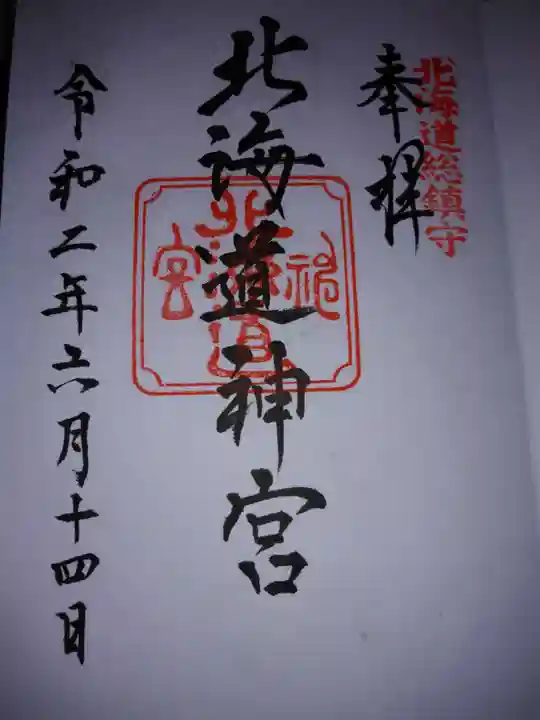 北海道総鎮守
奉拝
北海道神宮
北海道神宮
令和二年六月十四日